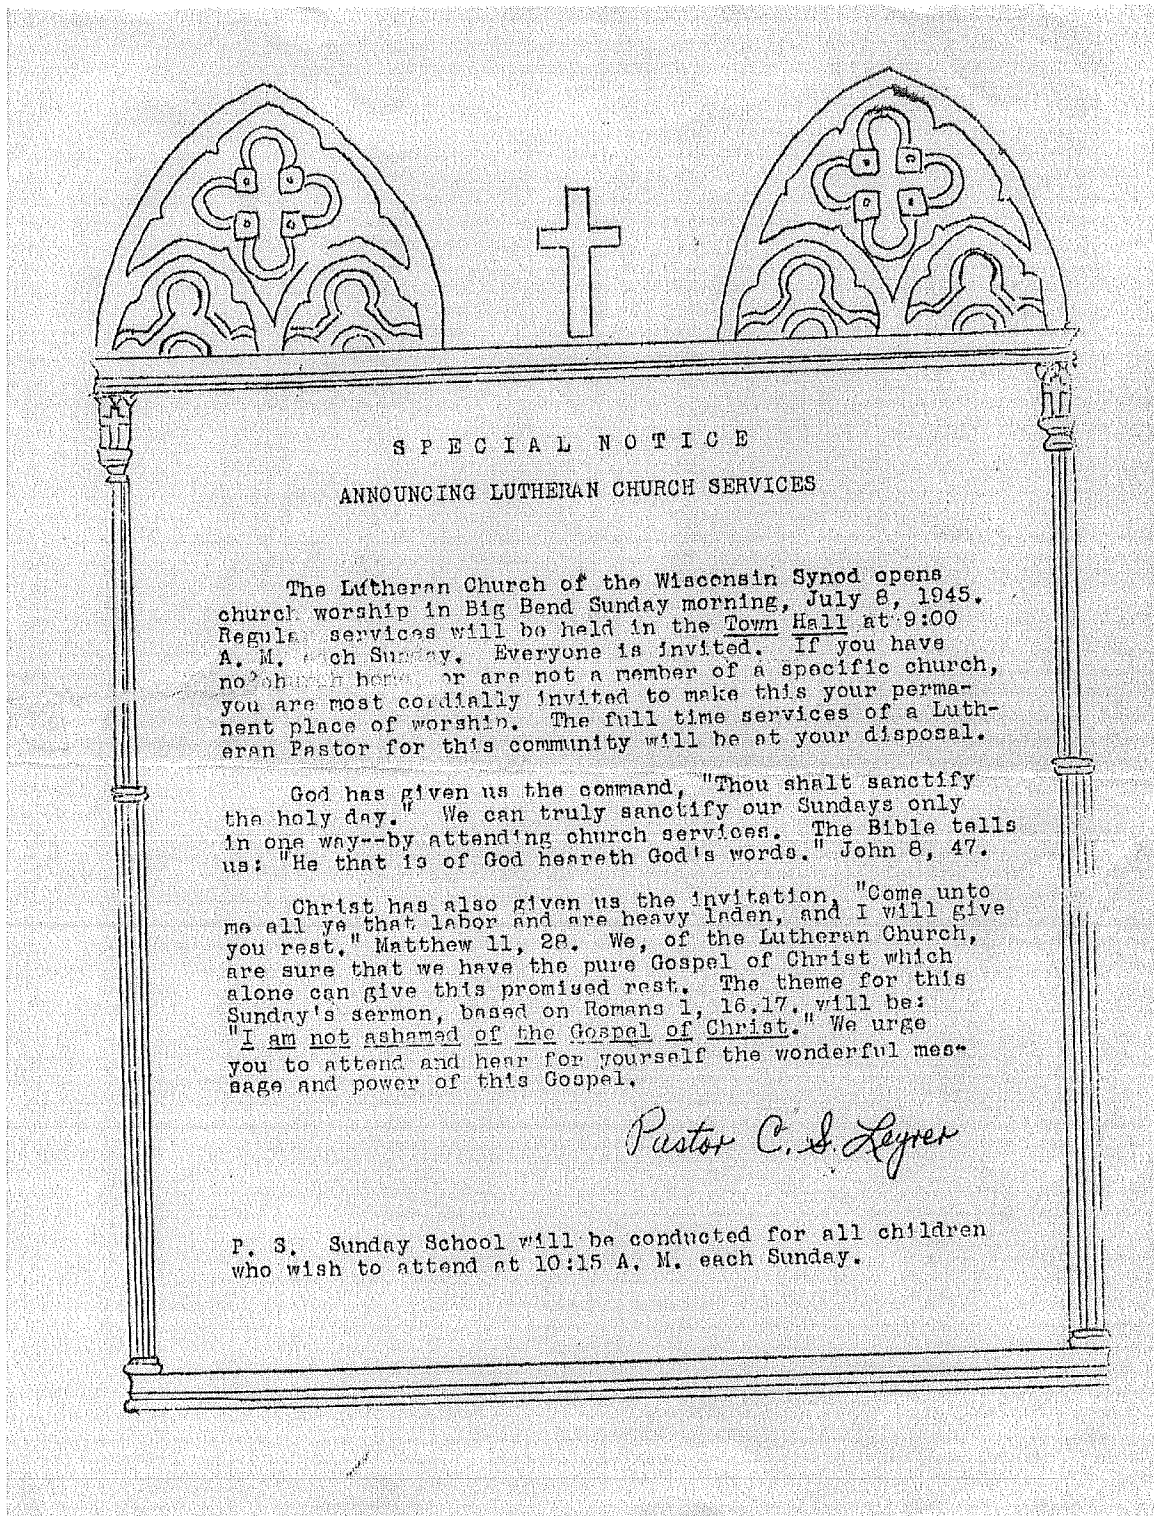 SPECIAL NOTICE
ANNOUNCING LUTHERAN CHURCH SERVICES
The Lutheran Church of the Wisconsin Synod opens
church worship in Big Bend Sunday morning, July 8, 1945.
Regular services will be held in the Town Hall at 9:00
A. M. each Sunday. Everyone is invited. If you have
no church home or are not a member of a specific church,
you are most cordially invited to make this your perma-
nent place of worship. The full time services of a Luth-
eran Pastor for this community will be at your disposal.
God has given us the command, "Thou shalt sanctify
the holy day." We can truly sanctify our Sundays only
in one way--by attending church services. The Bible tells
us: "He that is of God heareth God's words." John 8, 47.
Christ has also given us the invitation, "Come unto
me all ye that labor and are heavy laden, and I will give
you rest." Matthew 11, 28. We, of the Lutheran Church,
are sure that we have the pure Gospel of Christ which
alone can give this promised rest. The theme for this
Sunday's sermon, based on Romans 1, 16.17. will be:
"I am not ashamed of the Gospel of Christ." We urge
you to attend and hear for yourself the wonderful mes-
sage and power of this Gospel.
Pastor C. S. Leyrer
P. S. Sunday School will be conducted for all children
who wish to attend at 10:15 A. M. each Sunday.